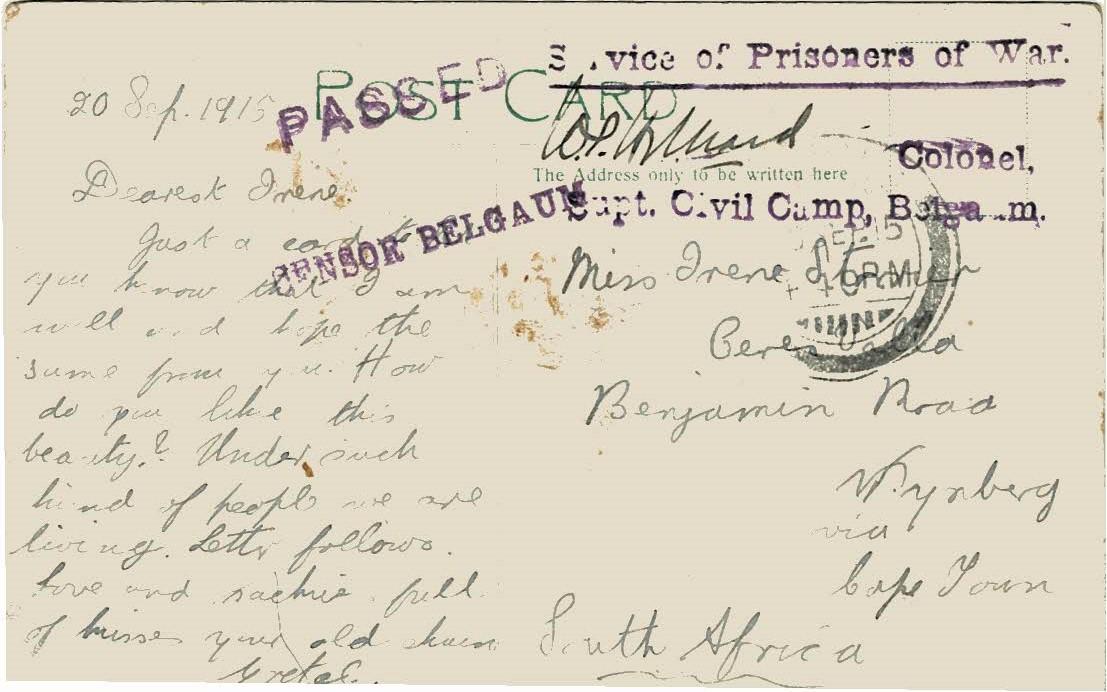 Service of Prisoners of War.
POST CARD
PASSED
Colonel,
The Address only to be written here
Supt. Civil Camp, Belgaum.
CENSOR BELGAUM
20 Sep. 1915
Dearest Irene
Just a card to
you know that I am
well and hope the
same from you. How
do you like this
beauty? Under such
kind of people we are
living. Letter follows.
Love and sackie full
of kisses your old chum
Gretel.
Miss Irene
Ceres Villa
Benjamin Road
Wynberg
via
Cape Town
South Africa